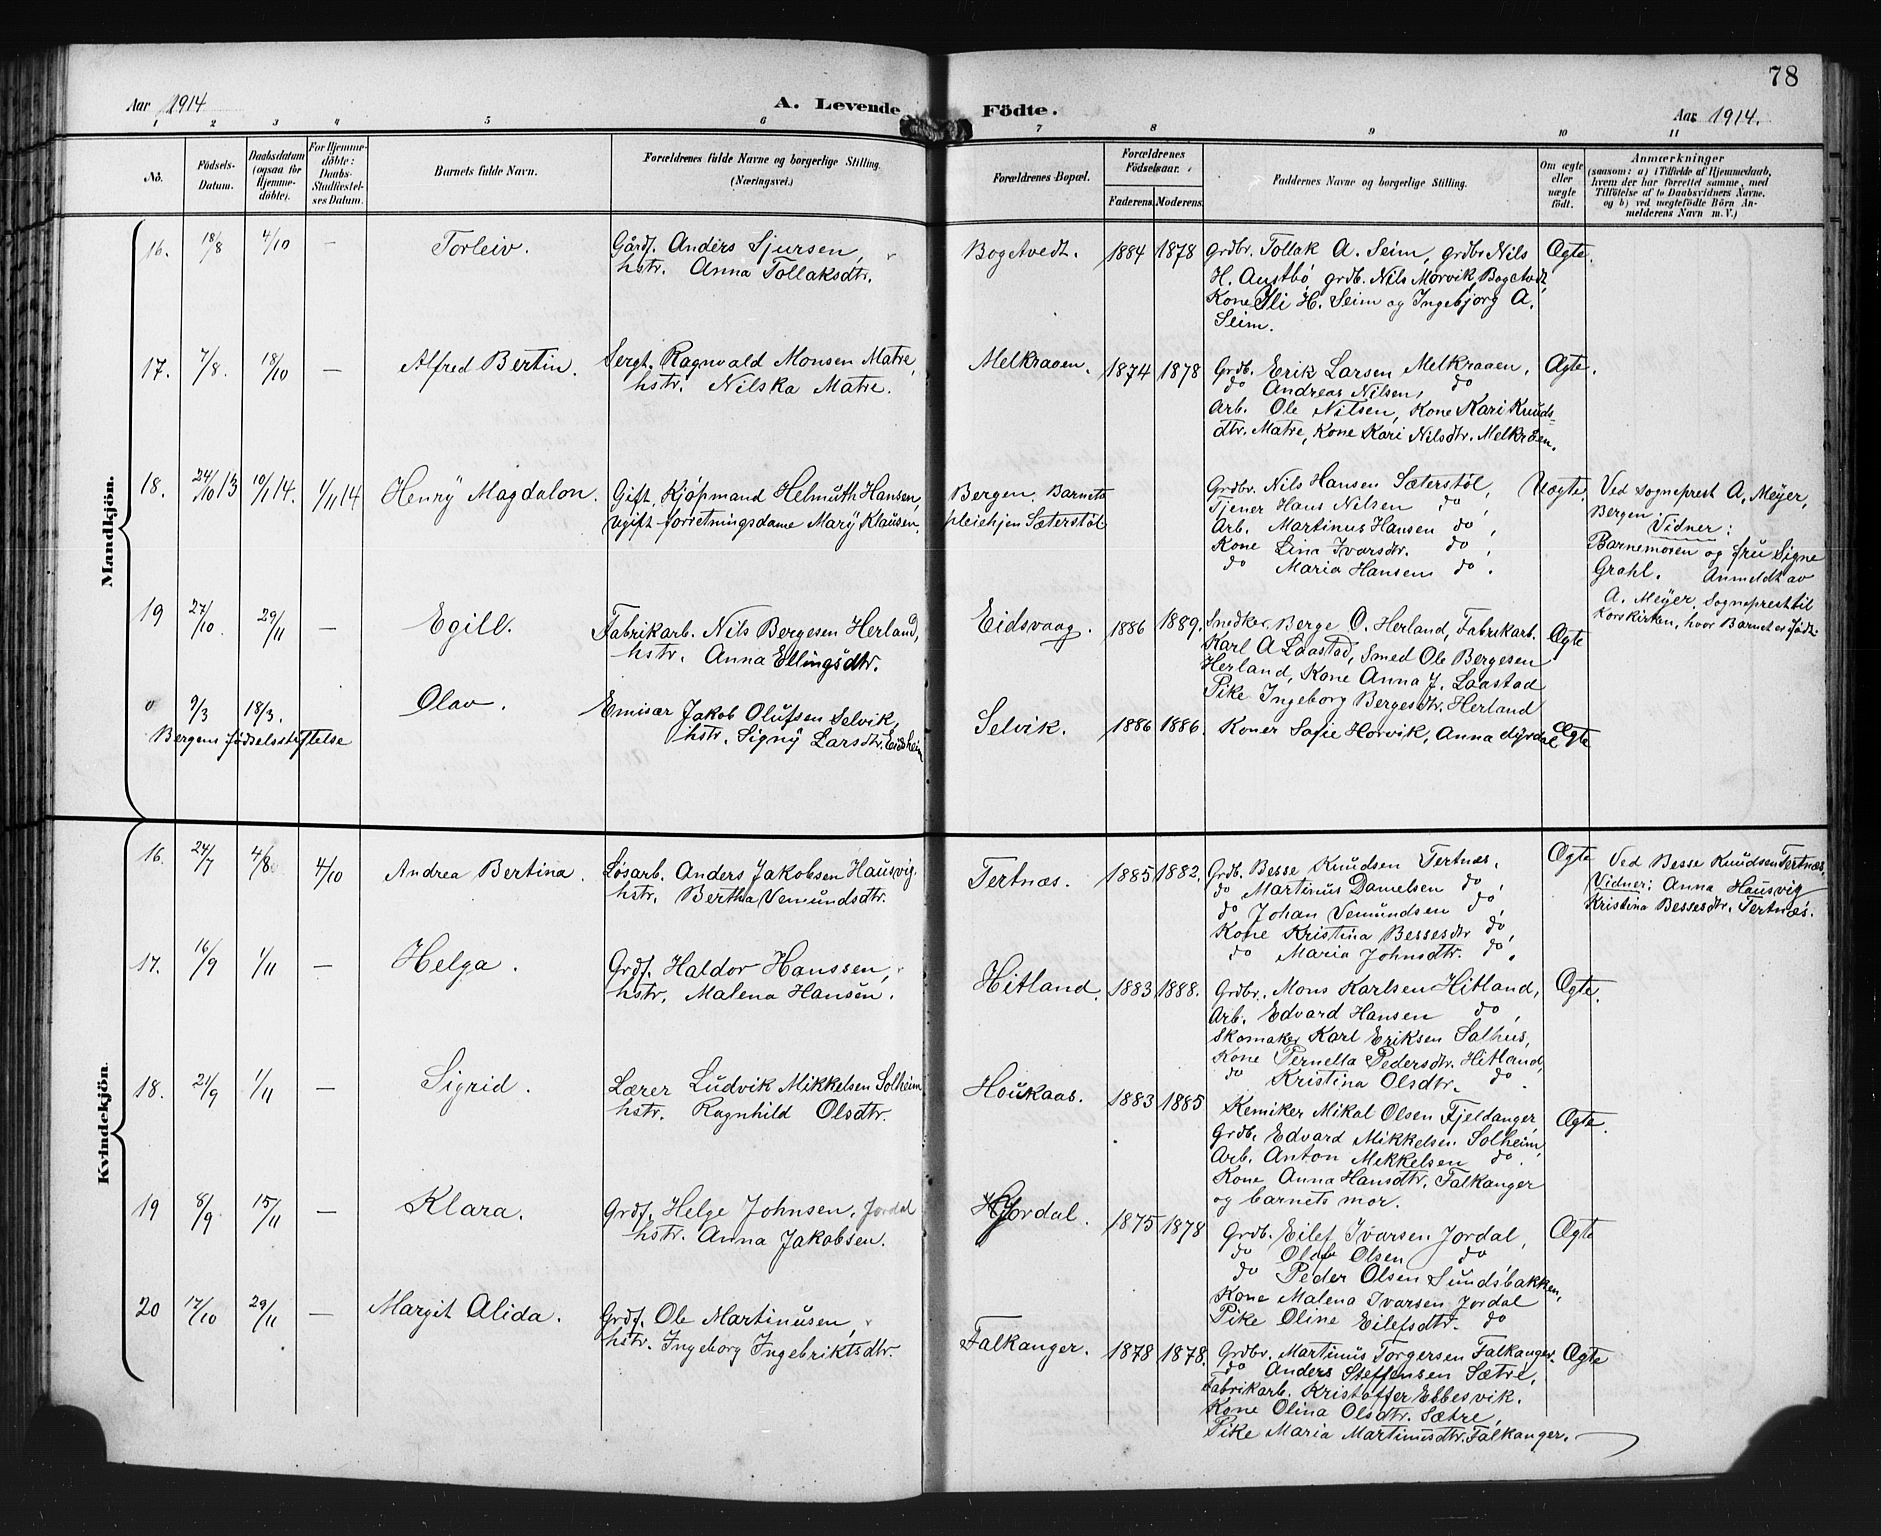 78
Aar 1914
A. Levende Födte.
Aar 1914.
1 2 3 4 5 6 7 8 9 10 11
No.
Födsels-
Datum.
Daabsdatum
(ogsaa for
Hjemme-
döbte).
For Hjemme-
döbte:
Daabs-
Stadfæstel-
ses Datum.
Barnets fulde Navn.
Forældrenes fulde Navne og borgerlige Stilling.
(Næringsvei.)
Forældrenes Bopæl.
Forældrenes
Födselsaar.
Faderens. Moderens.
Faddernes Navne og borgerlige Stilling.
Om ægte
eller
uægte
födt.
Anmærkninger
(saasom: a) i Tilfælde af Hjemmedaab,
hvem der har forrettet samme, med
Tilföielse af to Daabsvidners Navne,
og b) ved uægtefödte Börn An-
melderens Navn m. V.)
Mandkjön.
16. 18/8 4/10 — Torleiv. Gårdf. Anders Sjursen,
hstr. Anna Tollaksdtr. Bogetvedt. 1884 1878 Grdbr. Tollak A. Seim, grdbr Nils
H. Austbö, grdb. Nils Morvik, Bogetvedt,
Kone Ili H. Seim og Ingebjorg A.
Seim. Ægte.
17. 7/8. 18/10 — Alfred Bertin. Sergt. Ragnvald Monsen Matre,
hstr. Nilska Matre. Melkraaen. 1874 1878 Grdb. Erik Larsen Melkraaen,
do Andreas Nilsen, do
Arb. Ole Nilsen, Kone Kari Knuds-
dtr. Matre, Kone Kari Nilsdtr. Melkråen. Ægte.
18. 24/10 13 10/1 14. 1/11 14 Henry Magdalon. Gift. Kjöpmand Helmuth Hansen,
Ugift forretningsdame Mary Klausen. Bergen. Barnets
pleiehjem Sæterstöl Grdbr. Nils Hansen Sæterstöl,
Tjener Hans Nilsen do,
Arb. Martinus Hansen do,
Kone Lina Ivarsdtr. do,
do Maria Hansen do. Uægte. Ved sogneprest A. Meyer,
Bergen. Vidner:
Barnemoren og fru Signe
Grahl. Anmeldt av
A. Meyer, Sogneprest til
Korskirken, hvor Barnet er födt.
19 27/10. 29/11 — Egill. Fabrikarb. Nils Bergesen Herland,
hstr. Anna Ellingsdtr. Eidsvaag. 1886 1889. Snedker Berge O. Herland, Fabrikarb.
Karl A Laastad, Smed Ole Bergesen
Herland, Kone Anna J. Laastad
Pike Ingeborg Bergesdtr. Herland Ægte
0 9/3 18/3. — Olav. Emisær Jakob Olufsen Selvik,
hstr. Signy Larsdtr. Eidsheim Selvik. 1886 1886. Koner Sofie Horvik, Anna Dyrdal Ægte
Bergens födselsstiftelse
Kvindekjön.
16. 24/7 4/8 4/10 Andrea Bertina. Løsarb. Anders Jakobsen Hausvig.
hstr. Bertha Vemundsdtr. Tertnæs. 1885 1882. Grdb. Besse Knudsen Tertnæs,
do Martinus Danielsen do,
do Johan Vemundsen do,
Kone Kristina Bessesdtr do,
do Maria Johnsdtr. do. Ægte Ved Besse Knudsen Tertnæs,
Vidner: Anna Hausvig
Kristina Bessesdtr. Tertnæs.
17. 16/9 1/11 — Helga. Grdf. Haldor Hanssen,
hstr. Malena Hansen. Hitland. 1883 1888. Grdbr. Mons Karlsen Hitland,
Arb. Edvard Hansen do,
Skomaker Karl Eriksen Salhus,
Kone Pernella Pedersdtr. Hitland,
do Kristina Olsdtr. do. Ægte.
18. 21/9 1/11 — Sigrid. Lærer Ludvik Mikkelsen Solheim
hstr. Ragnhild Olsdtr. Houkaas. 1883 1885 Kemiker Mikal Olsen Fjeldanger,
Grdb. Edvard Mikkelsen Solheim,
Arb. Anton Mikkelsen do.
Kone Anna Hansdtr. Falkanger
og barnets mor. Ægte.
19 8/9 15/11 — Klara. Grdf. Helge Johnsen. Jordal
hstr. Anna Jakobsen. Jordal. 1875 1878 Grdb. Eilef Ivarsen Jordal,
do Olaf Olsen do
do Peder Olsen Sundsbakken,
Kone Malena Ivarsen Jordal
Pike Oline Eilefsdtr. do Ægte
20 17/10 29/11 — Margit Alida. Grdf. Ole Martinusen,
hstr. Ingeborg Ingebriktsdtr. Falkanger. 1878 1878. Grdbr. Martinus Torgersen Falkanger.
do Anders Steffensen Sætre,
Fabrikarb. Kristoffer Ebbesvik.
Kone Olina Olsdtr. Sætre,
Pike Maria Martinusdtr. Falkanger. Ægte